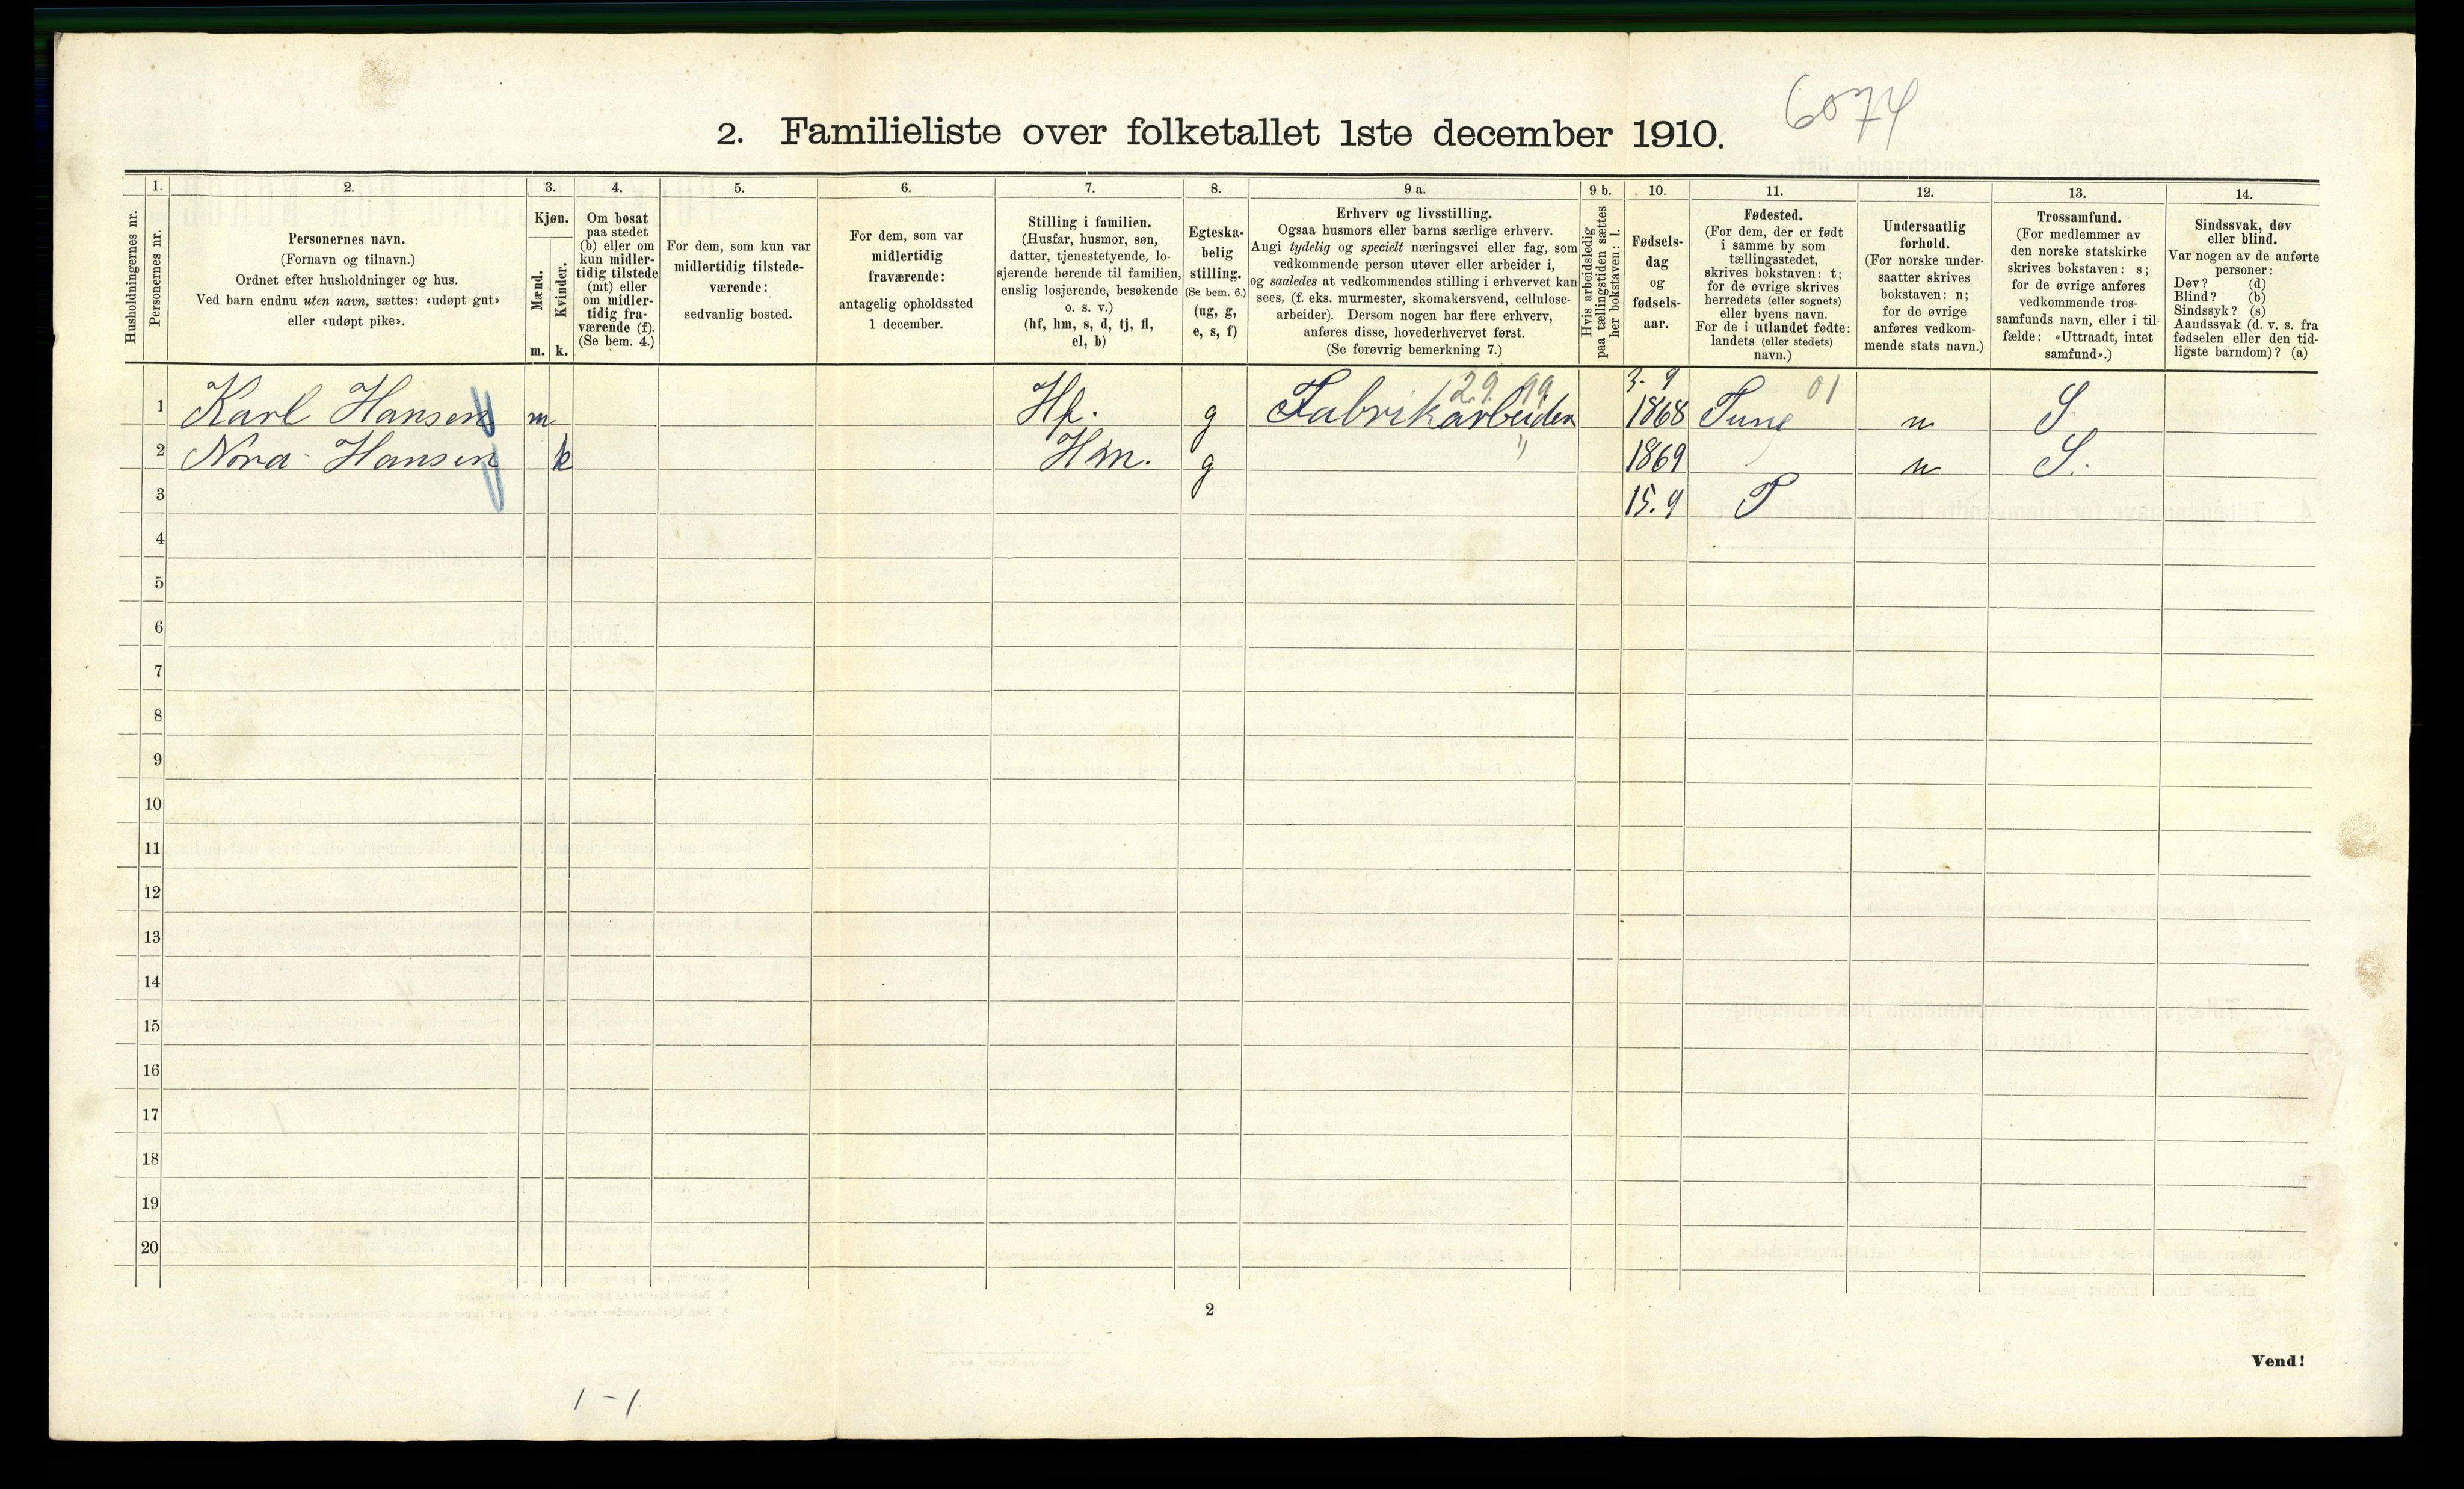 6074
2. Familieliste over folketallet 1ste december 1910.
Husholdningernes nr.
1.
Personernes nr.
2.
Personernes navn.
(Fornavn og tilnavn.)
Ordnet efter husholdninger og hus.
Ved barn endnu uten navn, sættes: «udøpt gut»
eller «udøpt pike».
3.
Kjøn.
Mænd.
Kvinder.
m. k.
4.
Om bosat
paa stedet
(b) eller om
kun midler-
tidig tilstede
(mt) eller
om midler-
tidig fra-
værende (f).
(Se bem. 4.)
5.
For dem, som kun var
midlertidig tilstede-
værende:
sedvanlig bosted.
6.
For dem, som var
midlertidig
fraværende:
antagelig opholdssted
1 december.
7.
Stilling i familien.
(Husfar, husmor, søn,
datter, tjenestetyende, lo-
sjerende hørende til familien,
enslig losjerende, besøkende
o. s. v.)
(hf, hm, s, d, tj, fl,
el, b)
8.
Egteska-
belig
stilling.
(Se bem. 6.)
(ug, g,
e, s, f)
9 a.
Erhverv og livsstilling.
Ogsaa husmors eller barns særlige erhverv.
Angi tydelig og specielt næringsvei eller fag, som
vedkommende person utøver eller arbeider i,
og saaledes at vedkommendes stilling i erhvervet kan
sees, (f. eks. murmester, skomakersvend, cellulose-
arbeider). Dersom nogen har flere erhverv,
anføres disse, hovederhvervet først.
(Se forøvrig bemerkning 7.)
9 b.
Hvis arbeidsledig
paa tællingstiden sættes
her bokstaven: l.
10.
Fødsels-
dag
og
fødsels-
aar.
11.
Fødested.
(For dem, der er født
i samme by som
tællingsstedet,
skrives bokstaven: t;
for de øvrige skrives
herredets (eller sognets)
eller byens navn.
For de i utlandet fødte:
landets (eller stedets)
navn.)
12.
Undersaatlig
forhold.
(For norske under-
saatter skrives
bokstaven: n;
for de øvrige
anføres vedkom-
mende stats navn.)
13.
Trossamfund.
(For medlemmer av
den norske statskirke
skrives bokstaven: s;
for de øvrige anføres
vedkommende tros-
samfunds navn, eller i til-
fælde: «Uttraadt, intet
samfund».)
14.
Sindssvak, døv
eller blind.
Var nogen av de anførte
personer:
Døv? (d)
Blind? (b)
Sindssyk? (s)
Aandssvak (d. v. s. fra
fødselen eller den tid-
ligste barndom)? (a)
29. 99 3. 9 01
1 Karl Hansen m Hf. g Fabrikarbeider 1868 Tune n S
2 Nora Hansen k Hm. g " 1869 n S.
3 15. 9 T
4
5
6
7
8
9
10
11
12
13
14
15
16
17
18
19
20
2
Vend!
1 - 1